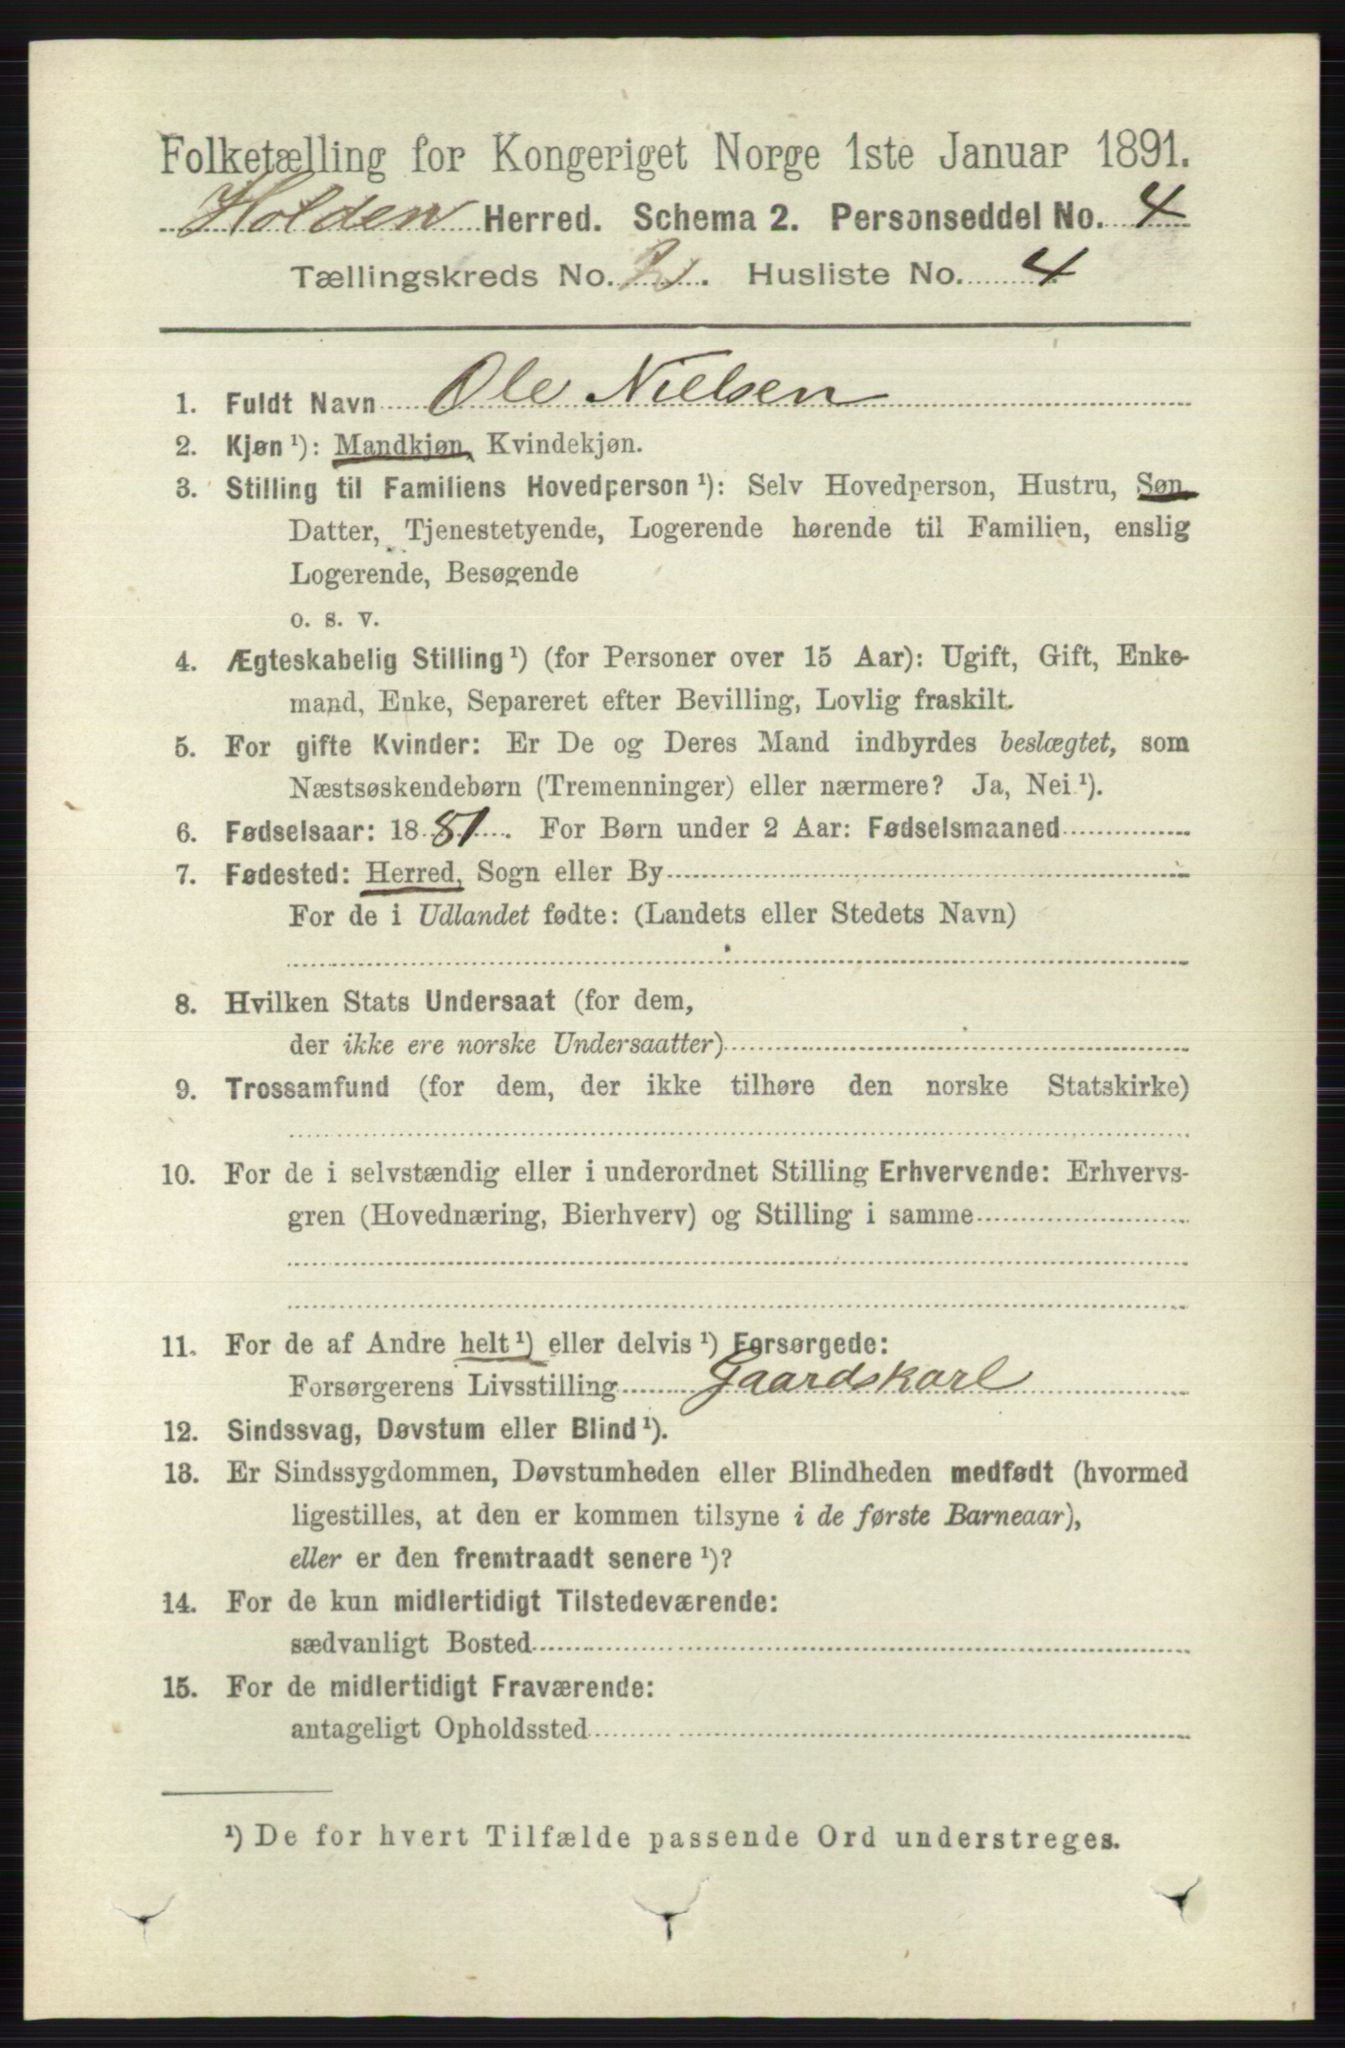 Folketælling for Kongeriget Norge 1ste Januar 1891.
Holden Herred. Schema 2. Personseddel No. 4
Tællingskreds No. . Husliste No. 4
1. Fuldt Navn Ole Nielsen
2. Kjøn ¹): Mandkjøn, Kvindekjøn.
3. Stilling til Familiens Hovedperson ¹): Selv Hovedperson, Hustru, Søn,
Datter, Tjenestetyende, Logerende hørende til Familien, enslig
Logerende, Besøgende
o. s. v.
4. Ægteskabelig Stilling ¹) (for Personer over 15 Aar): Ugift, Gift, Enke-
mand, Enke, Separeret efter Bevilling, Lovlig fraskilt.
5. For gifte Kvinder: Er De og Deres Mand indbyrdes beslægtet, som
Næstsøskendebørn (Tremenninger) eller nærmere? Ja, Nei ¹).
6. Fødselsaar: 1881. For Børn under 2 Aar: Fødselsmaaned
7. Fødested: Herred, Sogn eller By
For de i Udlandet fødte: (Landets eller Stedets Navn)
8. Hvilken Stats Undersaat (for dem,
der ikke ere norske Undersaatter)
9. Trossamfund (for dem, der ikke tilhøre den norske Statskirke)
10. For de i selvstændig eller i underordnet Stilling Erhvervende: Erhvervs-
gren (Hovednæring, Bierhverv) og Stilling i samme
11. For de af Andre helt ¹) eller delvis ¹) Forsørgede:
Forsørgerens Livsstilling Gaardskarl
12. Sindssvag, Døvstum eller Blind ¹).
13. Er Sindssygdommen, Døvstumheden eller Blindheden medfødt (hvormed
ligestilles, at den er kommen tilsyne i de første Barneaar),
eller er den fremtraadt senere ¹)?
14. For de kun midlertidigt Tilstedeværende:
sædvanligt Bosted
15. For de midlertidigt Fraværende:
antageligt Opholdssted
¹) De for hvert Tilfælde passende Ord understreges.